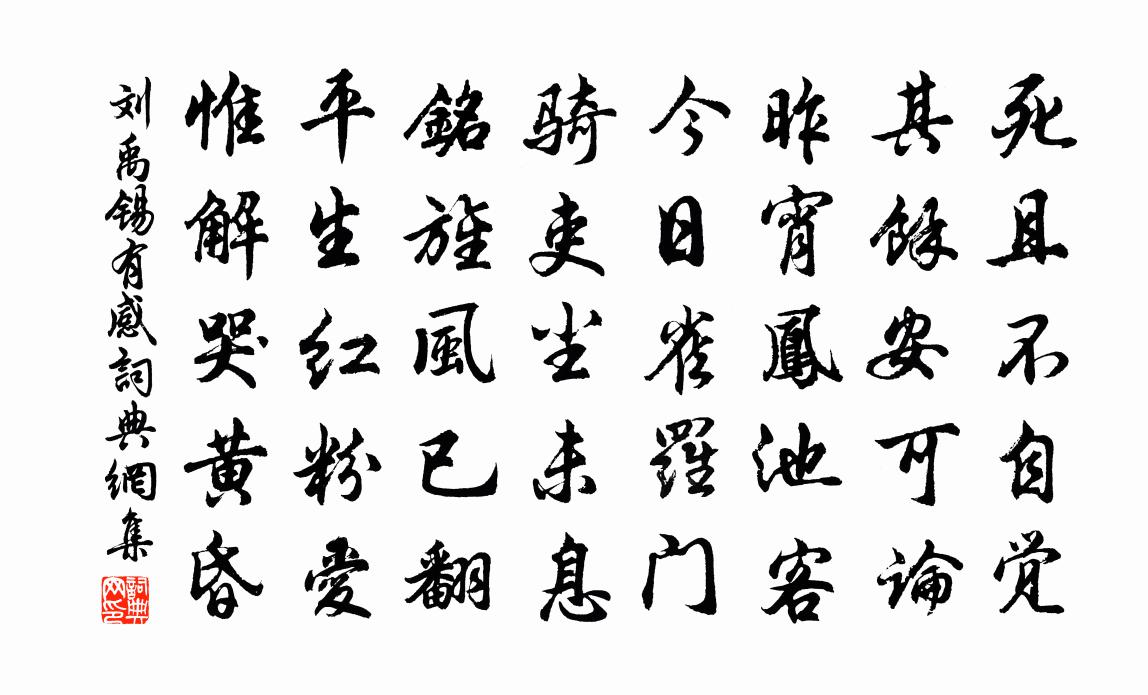 死且不自觉
其餘安可論
昨宵鳳池客
今日雀羅门
骑吏尘未息
銘旌風已翻
平生红粉愛
惟解哭黄昏
刘禹锡有感詞典網集
詞典网印